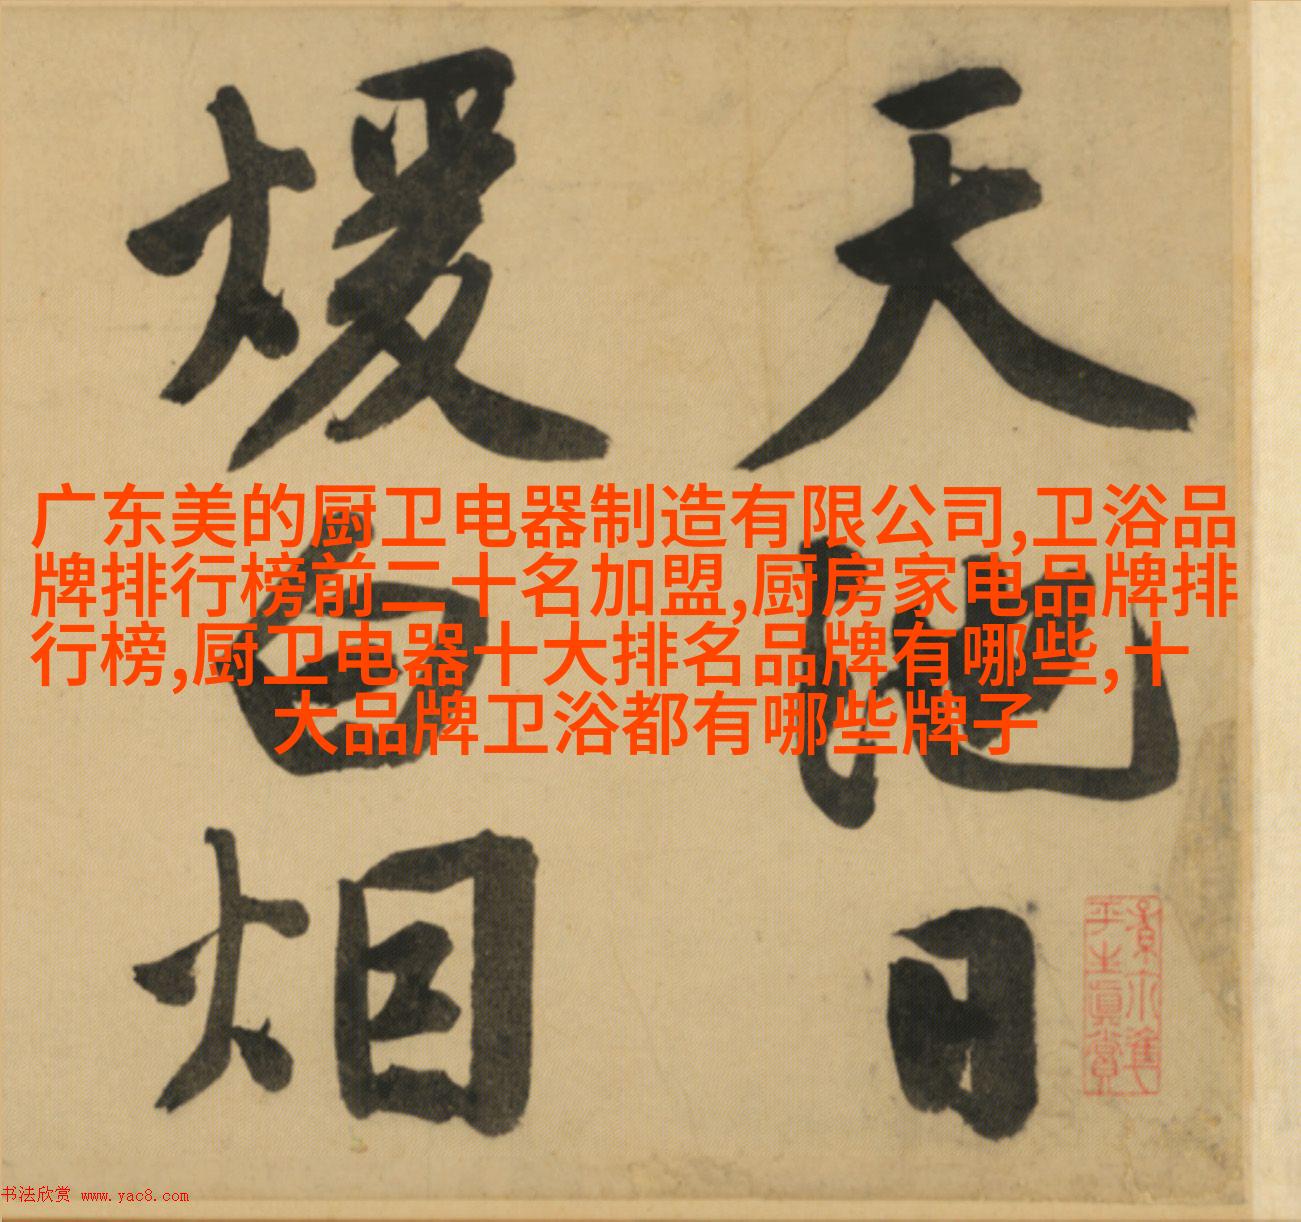 天池日
煖白烟
广东美的厨卫电器制造有限公司,卫浴品
牌排行榜前二十名加盟,厨房家电品牌排
行榜,厨卫电器十大排名品牌有哪些,十
大品牌卫浴都有哪些牌子
平生真賞
书法欣赏 www.yac8.com